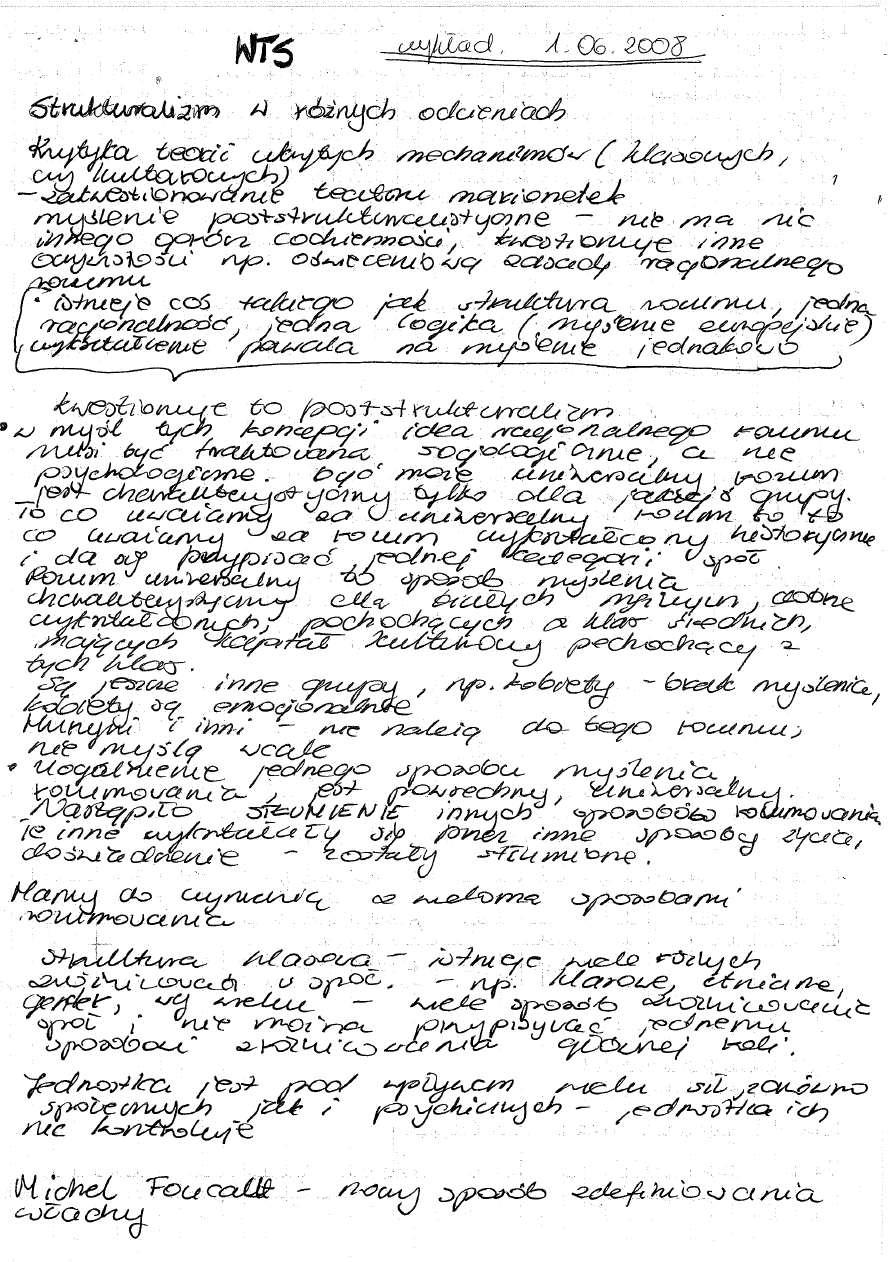 WTS wykład. 1.06.2008
Strukturalizm w różnych odcieniach
Krytyka teorii ukrytych mechanizmów (klasowych,
czy kulturowych)
- zakwestionowanie teatru marionetek
myślenie poststrukturalistyczne - nie ma nic
innego oprócz codzienności, kwestionuje inne
oczywistości np. oświeceniową zasadę racjonalnego
rozumu
• istnieje coś takiego jak struktura rozumu, jedna
racjonalność, jedna logika (myślenie europejskie)
wykształcenie pozwala na myślenie jednakowo
kwestionuje to poststrukturalizm
• w myśl tych koncepcji idea racjonalnego rozumu
musi być traktowana socjologicznie, a nie
psychologicznie. być może uniwersalny rozum
jest charakterystyczny tylko dla jakiejś grupy.
To co uważamy za uniwersalny rozum to to
co uważamy za rozum wykształcony historycznie
i da się przypisać jednej kategorii społ.
Rozum uniwersalny to sposób myślenia
charakterystyczny dla białych mężczyzn, dobrze
wykształconych, pochodzących z klas średnich,
mających kapitał kulturowy pochodzący z
tych klas.
Są jeszcze inne grupy, np. kobiety - brak myślenia,
kobiety są emocjonalne
Murzyni i inni - nie należą do tego rozumu,
nie myślą wcale
• Uogólnienie jednego sposobu myślenia,
rozumowania, jest powszechny, uniwersalny.
Nastąpiło STŁUMIENIE innych sposobów rozumowania
Te inne wykształciły się przez inne sposoby życia,
doświadczenie - zostały stłumione.
Mamy do czynienia z wieloma sposobami
rozumowania
struktura klasowa - istnieje wiele różnych
zróżnicowań w społ. - np. klasowe, etniczne,
gender, wg wieku - wiele sposób zróżnicowania
społ i nie można przypisywać jednemu
sposobowi zróżnicowania głównej roli.
Jednostka jest pod wpływem wielu sił, zarówno
społecznych jak i psychicznych - jednostka ich
nie kontroluje
Michel Foucault - nowy sposób zdefiniowania
władzy